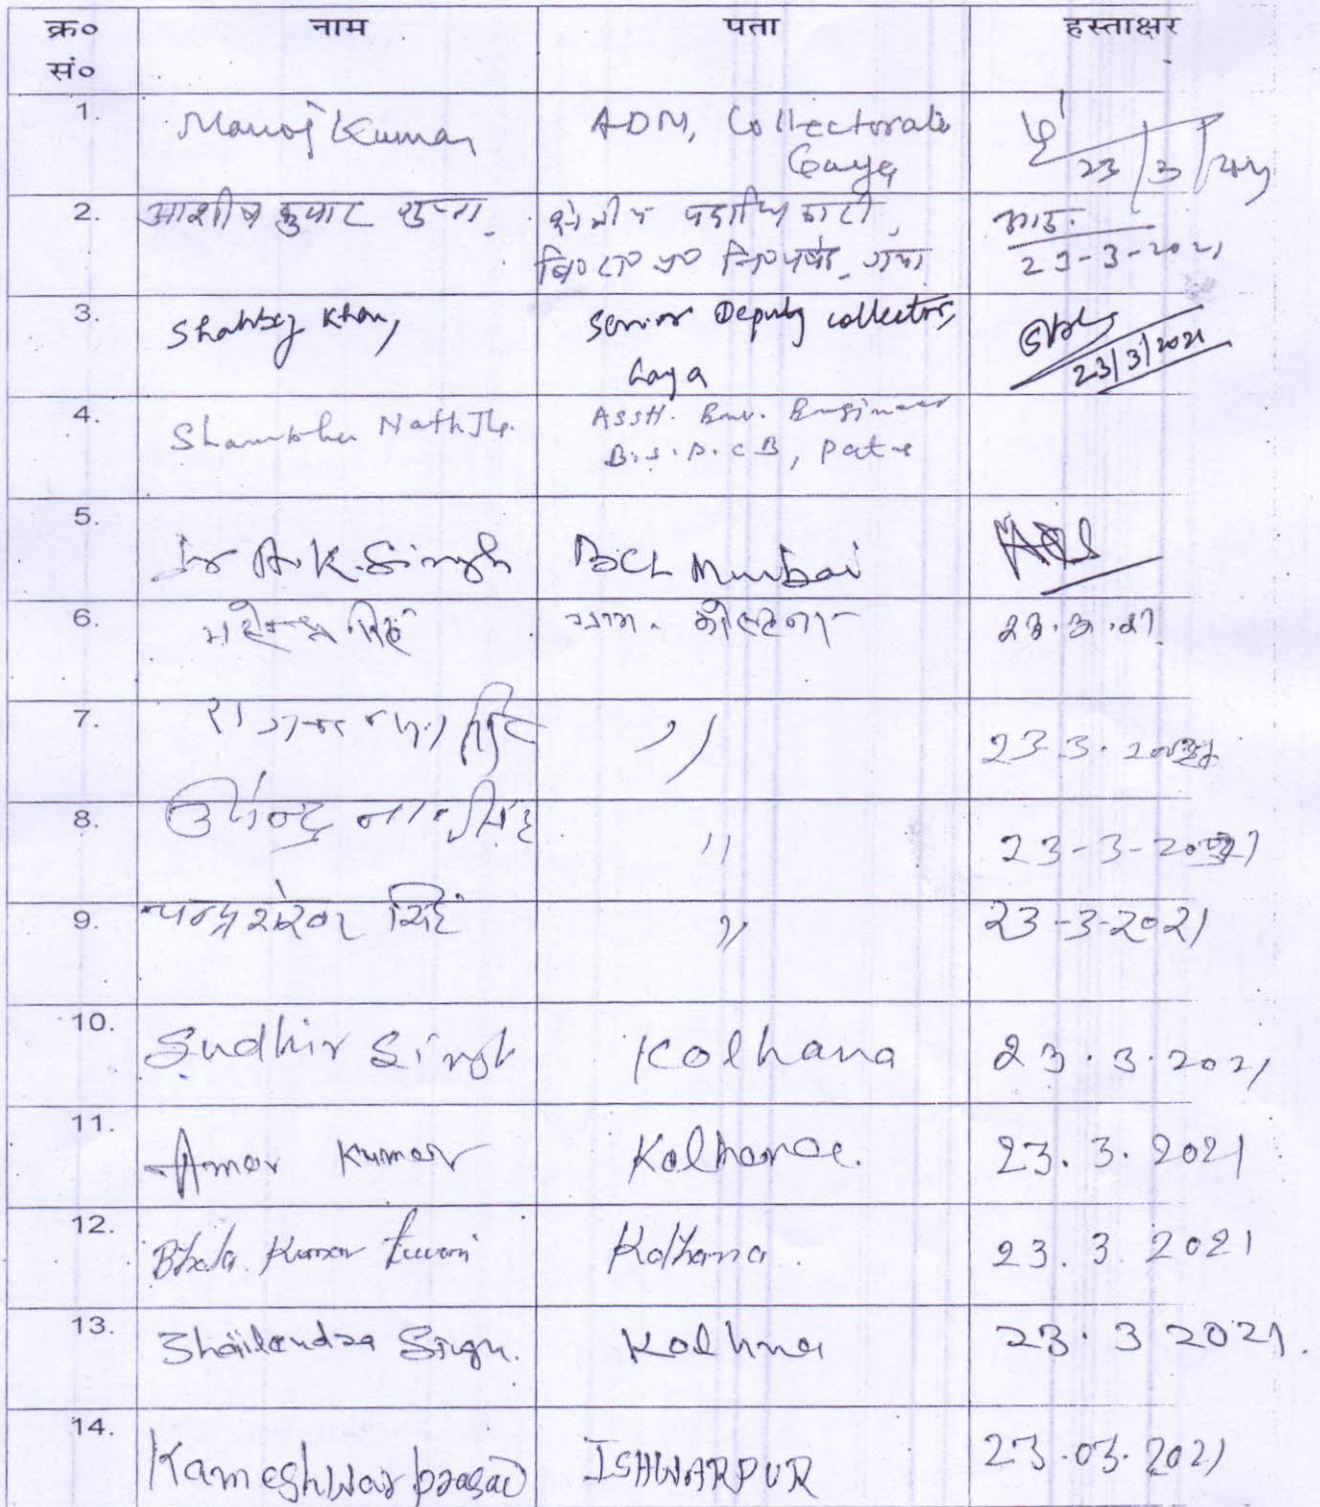 क्र० नाम पता हस्ताक्षर
सं०
1. Manoj Kumar ADM, Collectorate
Gaya 23/3/2021
2. आशीष कुमार गुप्ता. क्षेत्रीय पदाधिकारी,
गया 23-3-2021
3. Shahbaz Khan, Senior Deputy collector,
Gaya 23/3/2021
4. Shambhu Nath Jha. Asstt. Env. Engineer
B.S.P.C B, Patna
5. Dr A.K.Singh BCL Mumbai
6. महेन्द्र सिंह ग्राम. 23.3.21
7. सिंह 〃 23-3.
8. उपेन्द्र सिंह 〃 23-3-2021
9. चन्द्रशेखर सिंह 〃 23-3-2021
10. Sudhir Singh Kolhana 23.3.2021
11. Amar Kumar Kolhana. 23.3.2021
12. Bhola Kumar Tiwari Kolhana. 23.3 2021
13. Shailendra Singh. Kolhna 23.3 2021.
14. Kameshwar prasad ISHWARPUR 23.03.2021